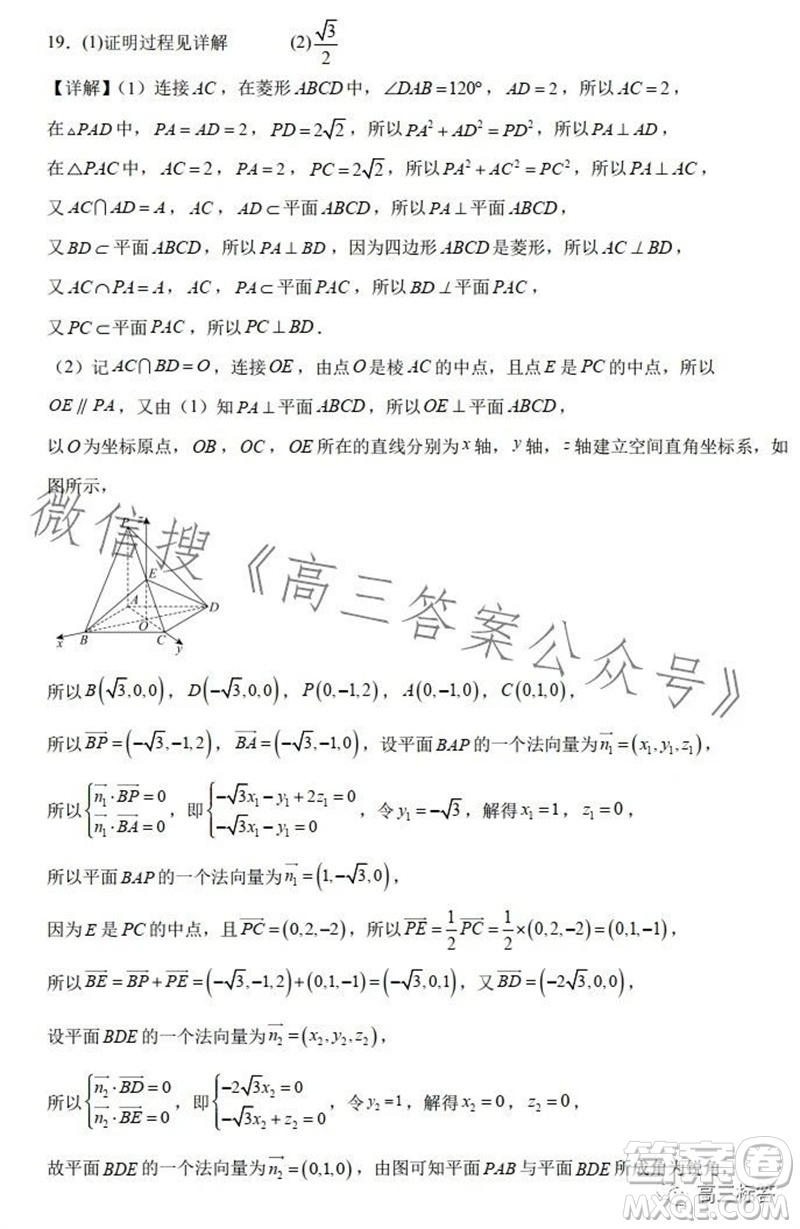 19．(1)证明过程见详解 (2)√3/2
【详解】（1）连接AC，在菱形ABCD中，∠DAB=120°，AD=2，所以AC=2，
在△PAD中，PA=AD=2，PD=2√2，所以PA²+AD²=PD²，所以PA⊥AD，
在△PAC中，AC=2，PA=2，PC=2√2，所以PA²+AC²=PC²，所以PA⊥AC，
又AC∩AD=A，AC，AD⊂平面ABCD，所以PA⊥平面ABCD，
又BD⊂平面ABCD，所以PA⊥BD，因为四边形ABCD是菱形，所以AC⊥BD，
又AC∩PA=A，AC，PA⊂平面PAC，所以BD⊥平面PAC，
又PC⊂平面PAC，所以PC⊥BD．
（2）记AC∩BD=O，连接OE，由点O是棱AC的中点，且点E是PC的中点，所以
OE∥PA，又由（1）知PA⊥平面ABCD，所以OE⊥平面ABCD，
以O为坐标原点，OB，OC，OE所在的直线分别为x轴，y轴，z轴建立空间直角坐标系，如
图所示，
P z
E
A D
O
B C
x y
微信搜《高三答案公众号》
所以B(√3,0,0)，D(−√3,0,0)，P(0,−1,2)，A(0,−1,0)，C(0,1,0)，
所以BP→=(−√3,−1,2)，BA→=(−√3,−1,0)，设平面BAP的一个法向量为n₁→=(x₁,y₁,z₁)，
所以{n₁→·BP→=0 n₁→·BA→=0，即{−√3x₁−y₁+2z₁=0 −√3x₁−y₁=0，令y₁=−√3，解得x₁=1，z₁=0，
所以平面BAP的一个法向量为n₁→=(1,−√3,0)，
因为E是PC的中点，且PC→=(0,2,−2)，所以PE→=1/2PC→=1/2×(0,2,−2)=(0,1,−1)，
所以BE→=BP→+PE→=(−√3,−1,2)+(0,1,−1)=(−√3,0,1)，又BD→=(−2√3,0,0)，
设平面BDE的一个法向量为n₂→=(x₂,y₂,z₂)，
所以{n₂→·BD→=0 n₂→·BE→=0，即{−2√3x₂=0 −√3x₂+z₂=0，令y₂=1，解得x₂=0，z₂=0，
故平面BDE的一个法向量为n₂→=(0,1,0)，由图可知平面PAB与平面BDE所成角为锐角，
答案圈
高三标答
MXQE.COM